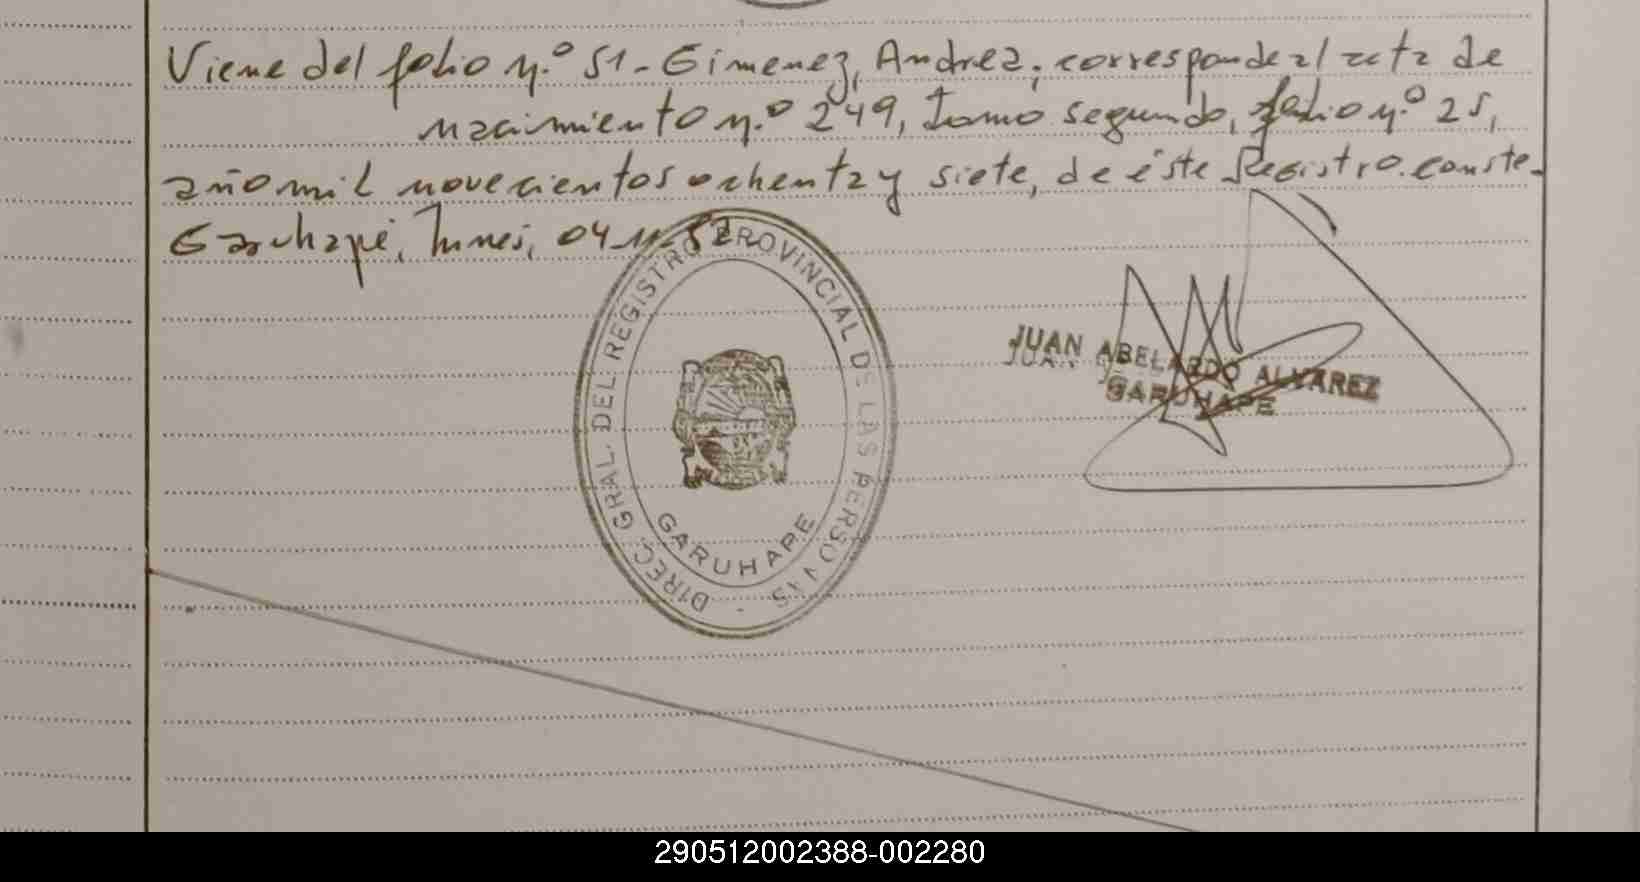 Viene del folio n.º 51-Gimenez, Andrea, corresponde al acta de
nacimiento n.º 249, tomo segundo, folio n.º 25,
año mil novecientos ochenta y siete, de éste Registro. conste-
Garuhapé, lunes, 04
DIREC. GRAL. DEL REGISTRO PROVINCIAL DE LAS PERSONAS -
GARUHAPE
JUAN ABELARDO ALVAREZ
GARUHAPE
290512002388-002280